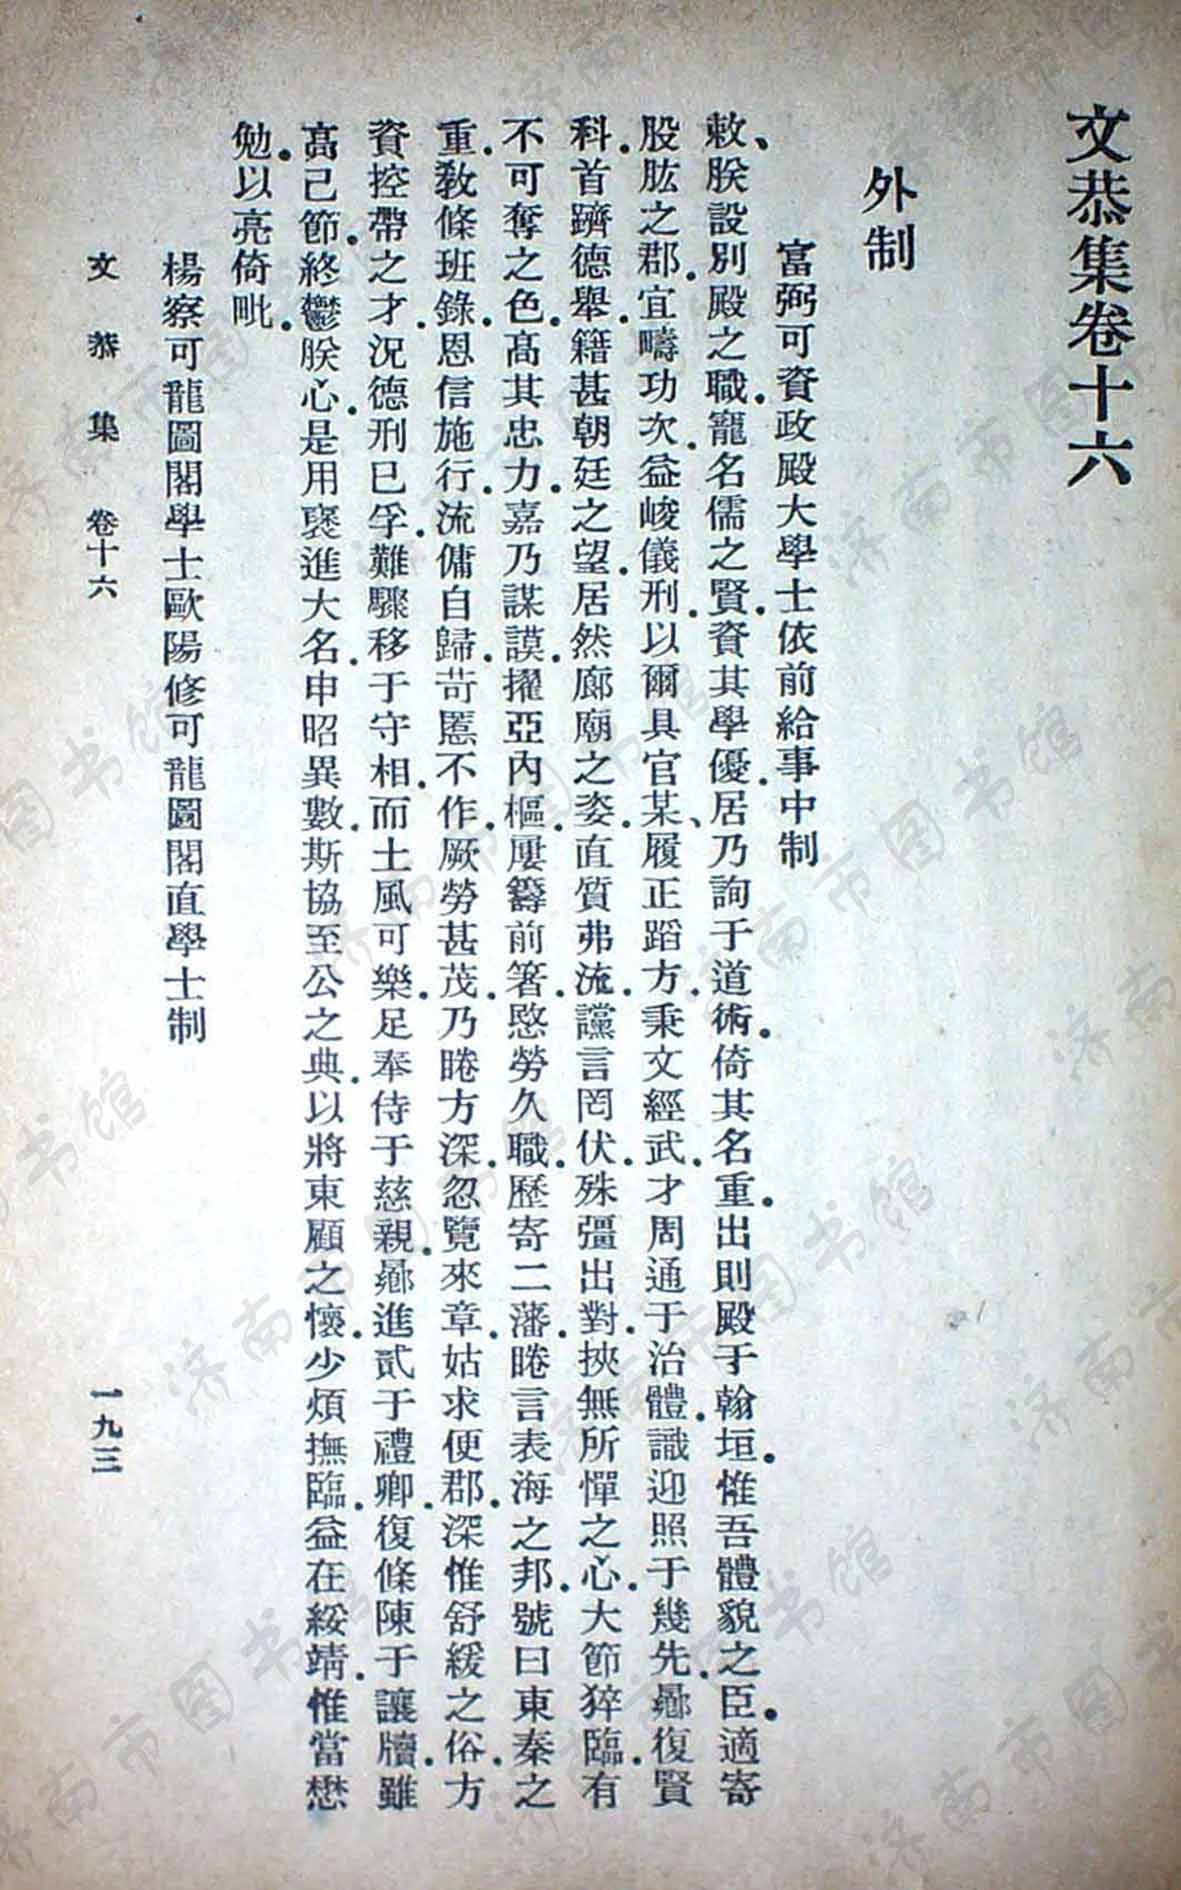 文恭集卷十六
外制
富弼可資政殿大學士依前給事中制
敕、朕設別殿之職.寵名儒之賢.資其學優.居乃詢于道術.倚其名重.出則殿于翰垣.惟吾體貌之臣.適寄
股肱之郡.宜疇功次.益峻儀刑.以爾具官某、履正蹈方.秉文經武.才周通于治體.識迎照于幾先.曏復賢
科.首躋德舉.籍甚朝廷之望.居然廊廟之姿.直質弗流.讜言罔伏.殊彊出對.挾無所憚之心.大節猝臨.有
不可奪之色.高其忠力.嘉乃謀謨.擢亞內樞.屢籌前箸.愍勞久職.歷寄二藩.睠言表海之邦.號曰東秦之
重.敎條班錄.恩信施行.流傭自歸.苛慝不作.厥勞甚茂.乃睠方深.忽覽來章.姑求便郡.深惟舒緩之俗.方
資控帶之才.況德刑已孚.難驟移于守相.而土風可樂.足奉侍于慈親.曏進貳于禮卿.復條陳于讓牘.雖
高己節.終鬱朕心.是用褒進大名.申昭異數.斯協至公之典.以將東顧之懷.少煩撫臨.益在綏靖.惟當懋
勉.以亮倚毗.
楊察可龍圖閣學士歐陽修可龍圖閣直學士制
文恭集 卷十六 一九三
济南市图书馆